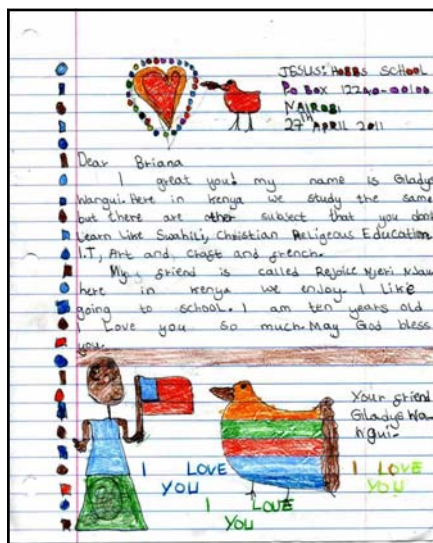 JESUS: HOBBS SCHOOL
PO BOX 1224
NAIROBI
27TH APRIL 2011
Dear Briana
I great you! my name is Gladys
Wangui. Here in kenya we study the same
but there are other subject that you dont
Learn Like Swahili, Christian Religeous Education
I.T, Art and, craft and french.
My friend is called Rejoice Njeri Njau
here in kenya we enjoy. I Like
going to school. I am ten years old
I Love you so much. May God bless
you.
Your friend
Gladys Wa-
ngui.
I LOVE
YOU
I LOVE
YOU
I LOVE
YOU